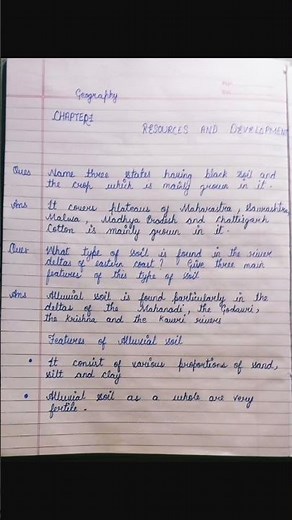 Geography
CHAPTER-1
RESOURCES AND DEVELOPMENT
Ques Name three states having black soil and
the crop which is mainly grown in it.
Ans It covers plateaus of Maharastra, Saurashtra,
Malwa, Madhya Pradesh and Chattisgarh
Cotton is mainly grown in it.
Ques What type of soil is found in the river
deltas of eastern coast? Give three main
features of this type of soil
Ans Alluvial soil is found particularly in the
deltas of the Mahanadi, the Godavri,
the Krishna and the Kauvri rivers
Features of Alluvial soil
• It consist of various proportions of sand,
silt and clay
• Alluvial soil as a whole are very
fertile.